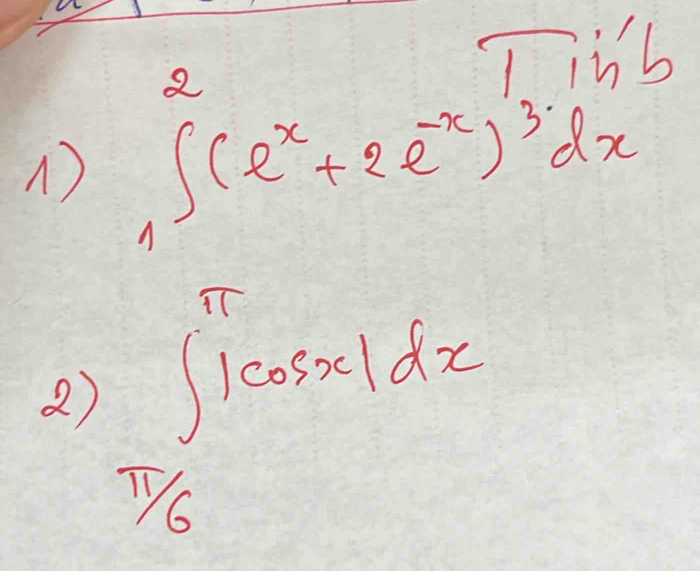 Tính
1) ∫₁² (eˣ + 2e⁻ˣ)³ dx
2) ∫_{π/6}^{π} |cosx| dx